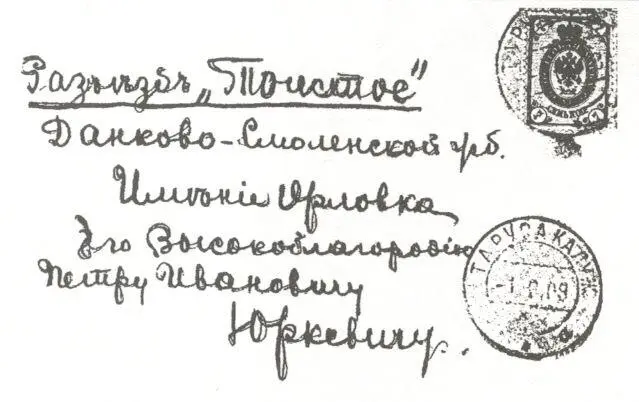 Разъѣздъ „Толстое"
Данково-Смоленской ж.д.
Имѣніе Орловка
Его Высокоблагородію
Петру Ивановичу
Юркевичу.
ТАРУСА КАЛУЖ
7 7